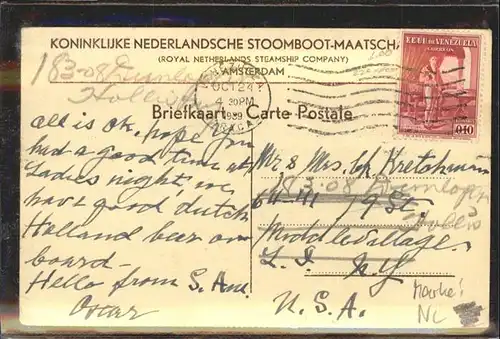 KONINKLIJKE NEDERLANDSCHE STOOMBOOT-MAATSCHA
(ROYAL NETHERLANDS STEAMSHIP COMPANY)
AMSTERDAM
EEUU DE VENEZUELA
0,10
OCT 24
4 30PM
1939
183-08 Dunlop
Hollis
Briefkaart Carte Postale
all is ok, hope you
had a good time at
Ladies night, we
have good dutch
Holland beer on
board-
Hello from S. Am.
Oscar
Mr & Mrs. Ch Kretchmann
183-08 Dunlop
64-41 79 St.
Hollis
Middle Village.
L. I. N.Y
U. S. A.
NL